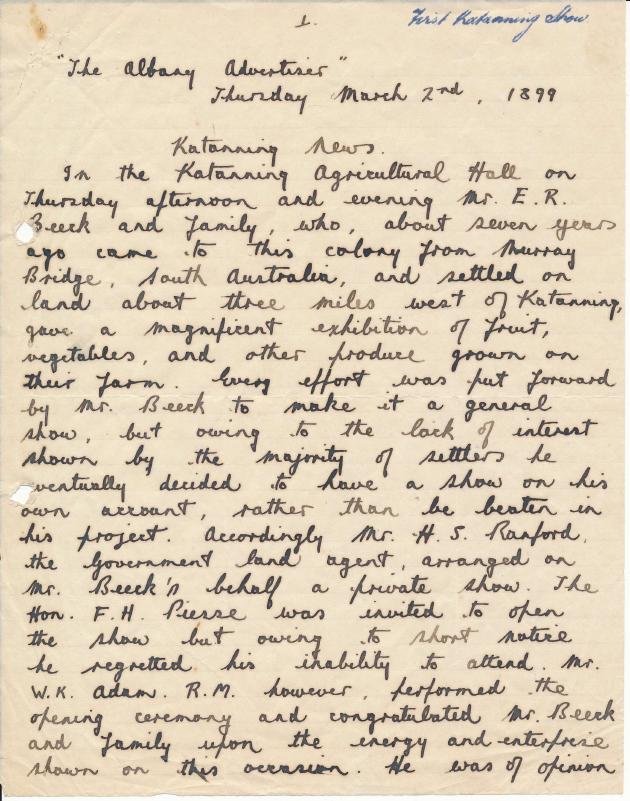 1.
First Katanning Show
"The Albany Advertiser"
Thursday March 2nd, 1899
Katanning News.
In the Katanning Agricultural Hall on
Thursday afternoon and evening Mr. E.R.
Beeck and family, who, about seven years
ago came to this colony from Murray
Bridge, South Australia, and settled on
land about three miles west of Katanning,
gave a magnificent exhibition of fruit,
vegetables, and other produce grown on
their farm. Every effort was put forward
by Mr. Beeck to make it a general
show, but owing to the lack of interest
shown by the majority of settlers he
eventually decided to have a show on his
own account, rather than be beaten in
his project. Accordingly Mr. H. S. Ranford,
the Government land agent, arranged on
Mr. Beeck's behalf a private show. The
Hon. F.H. Piesse was invited to open
the show but owing to short notice
he regretted his inability to attend. Mr.
W.K. Adam. R.M. however, performed the
opening ceremony and congratulated Mr. Beeck
and family upon the energy and enterprise
shown on this occasion. He was of opinion